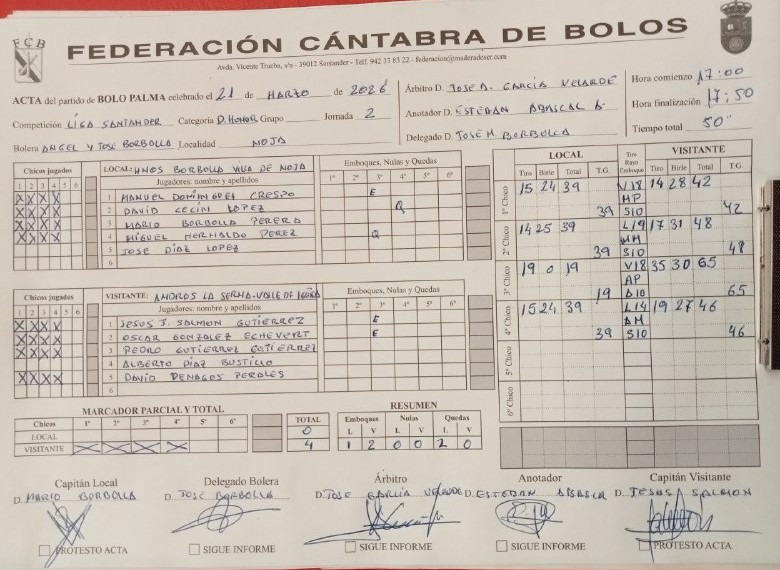 FCB
FEDERACIÓN CÁNTABRA DE BOLOS
Avda. Vicente Trueba, s/n - 39012 Santander - Telf. 942 33 83 22 - federacion@maderadeser.com
ACTA del partido de BOLO PALMA celebrado el 21 de MARZO de 2026
Árbitro D. JOSE A. GARCÍA VELARDE
Hora comienzo 17:00
Competición LIGA SANTANDER Categoría D. HONOR Grupo Jornada 2
Anotador D. ESTEBAN ABASCAL G.
Hora finalización 17:50
Bolera ANGEL Y JOSE BORBOLLA Localidad NOJA
Delegado D. JOSE M. BORBOLLA
Tiempo total 50"
Chicos jugados
1 2 3 4 5 6
LOCAL: HNOS BORBOLLA VILLA DE NOJA
Jugadores: nombre y apellidos
Emboques, Nulas y Quedas
1º 2º 3º 4º 5º 6º
X X X X 1 MANUEL DOMINGUEZ CRESPO E
X X X X 2 DAVID CECIN LOPEZ Q
X X X X 3 MARIO BORBOLLA PERERA
X X X X 4 MIGUEL HERNALDO PEREZ Q
5 JOSE DÍAZ LOPEZ
6
Chicos jugados
1 2 3 4 5 6
VISITANTE: ANDROS LA SERNA-VALLE DE IGUÑA
Jugadores: nombre y apellidos
Emboques, Nulas y Quedas
1º 2º 3º 4º 5º 6º
X X X X 1 JESUS J. SALMON GUTIERREZ E
X X X X 2 OSCAR GONZALEZ ECHEVERT E
X X X X 3 PEDRO GUTIERREZ GUTIERREZ
4 ALBERTO DÍAZ BUSTILLO
X X X X 5 DAVID PENAGOS PERALES
6
LOCAL
Tiro Birle Total T.G.
Tiro Raya Emboque
VISITANTE
Tiro Birle Total T.G.
1º Chico 15 24 39 39 V18 MP S10 14 28 42 42
2º Chico 14 25 39 39 L19 MM S10 17 31 48 48
3º Chico 19 0 19 19 V18 AP D10 35 30 65 65
4º Chico 15 24 39 39 L14 AM S10 19 27 46 46
5º Chico
6º Chico
MARCADOR PARCIAL Y TOTAL
Chicos 1º 2º 3º 4º 5º 6º TOTAL
LOCAL 0
VISITANTE X X X X 4
RESUMEN
Emboques Nulas Quedas
L V L V L V
1 2 0 0 2 0
Capitán Local
D. MARIO BORBOLLA
PROTESTO ACTA
Delegado Bolera
D. JOSE BORBOLLA
SIGUE INFORME
Árbitro
D. JOSE GARCIA VELARDE
SIGUE INFORME
Anotador
D. ESTEBAN ABASCAL
SIGUE INFORME
Capitán Visitante
D. JESUS SALMON
PROTESTO ACTA